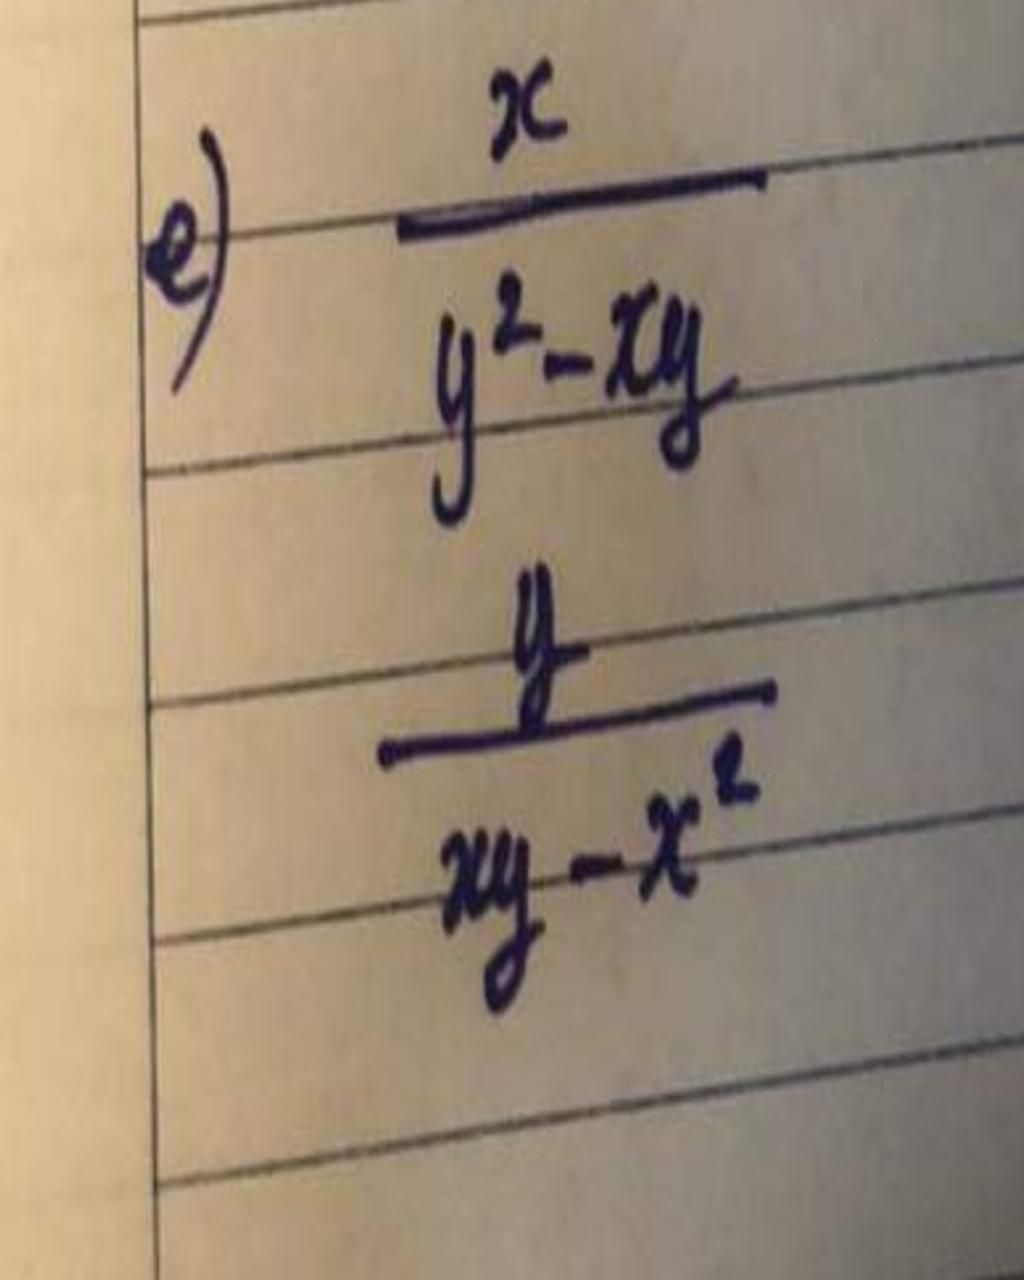 e) x
y² - xy
y
xy - x²